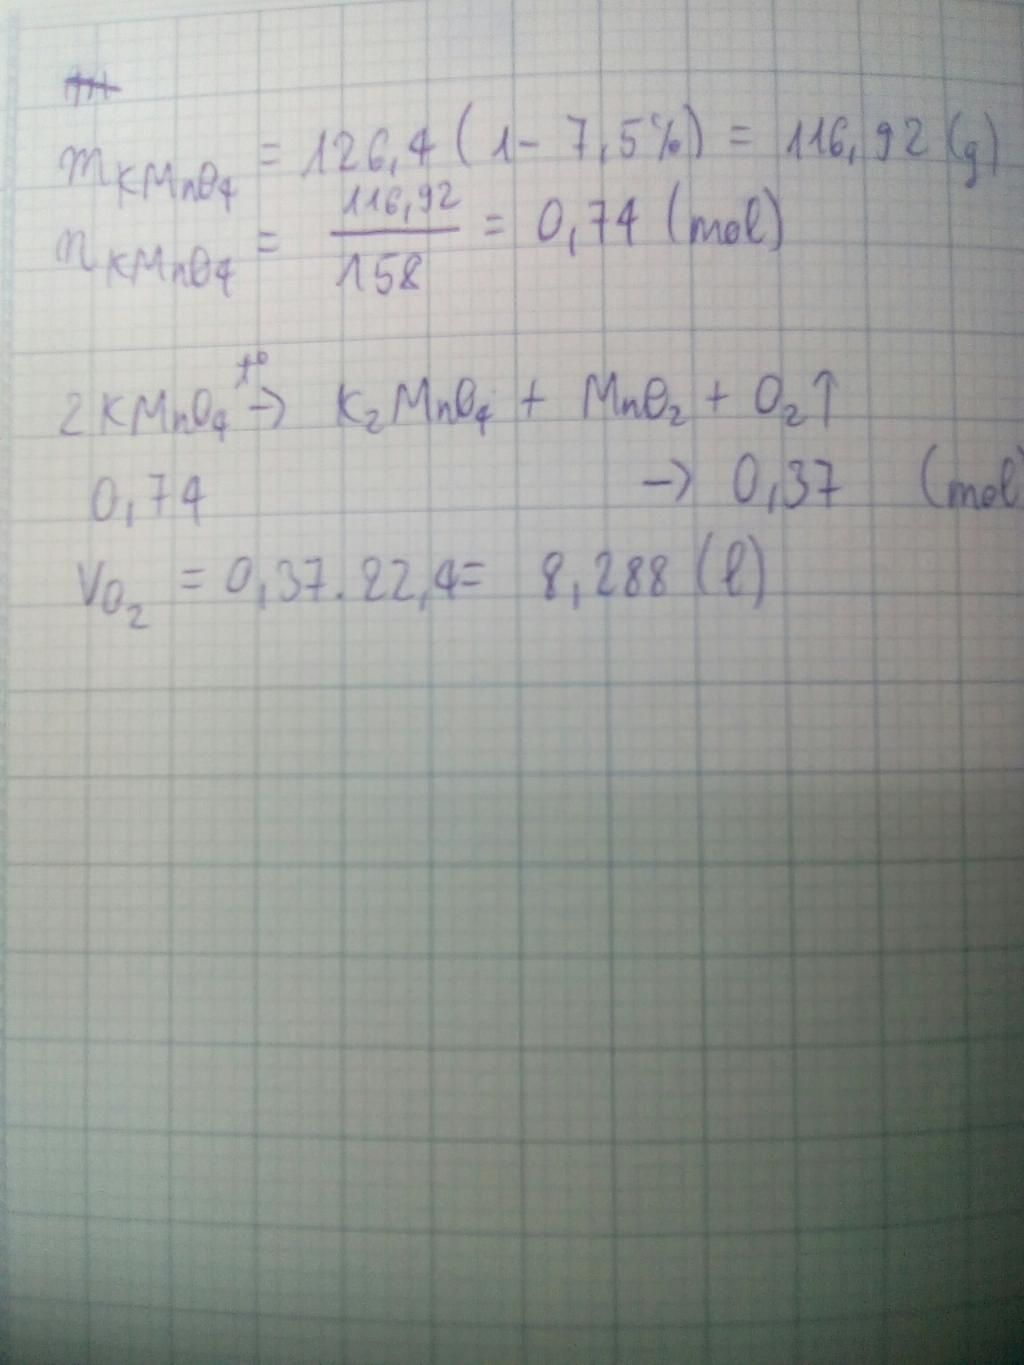 m KMnO4 = 126,4 (1 - 7,5%) = 116,92 (g)
n KMnO4 = 116,92 / 158 = 0,74 (mol)
2KMnO4 t° → K2MnO4 + MnO2 + O2↑
0,74 → 0,37 (mol)
VO2 = 0,37.22,4 = 8,288 (l)